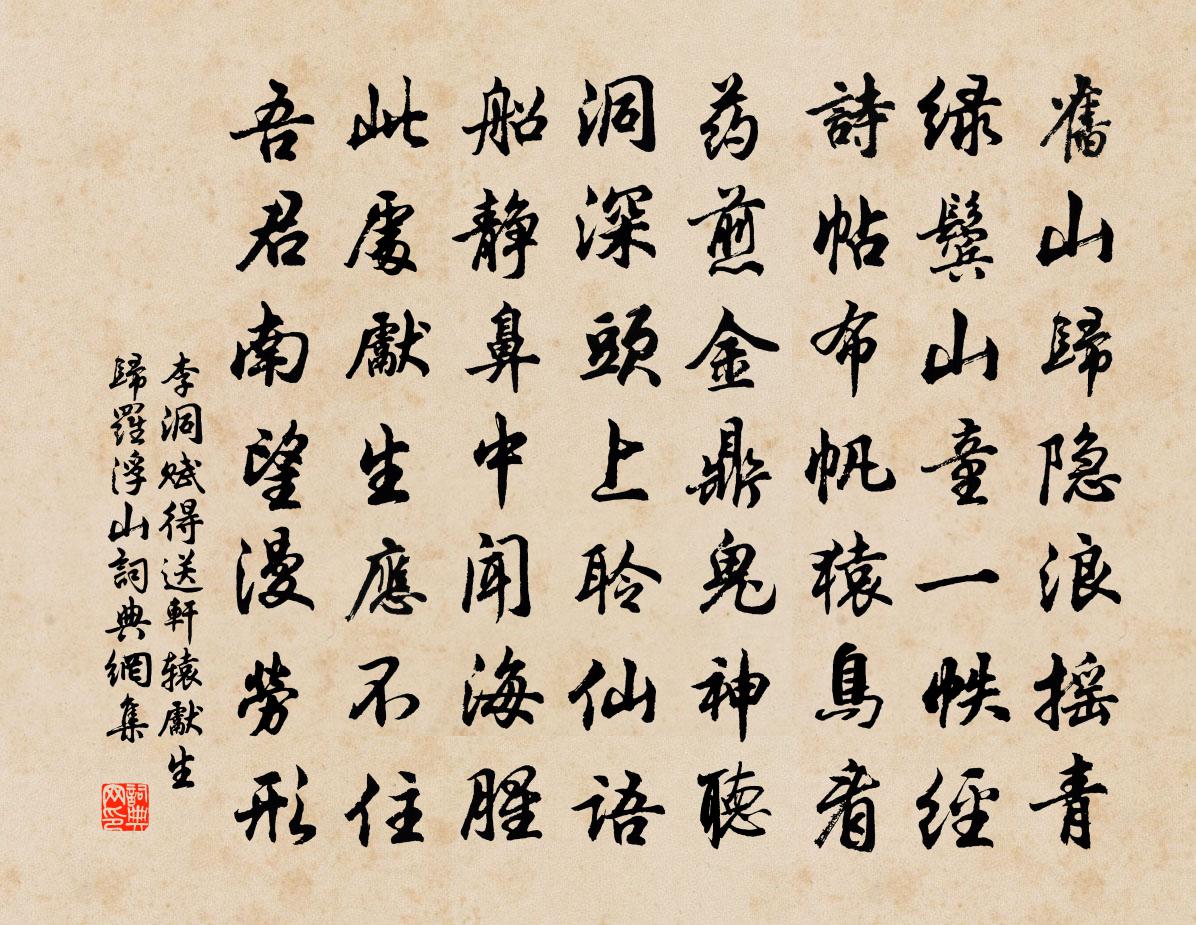 舊山歸隐浪摇青
绿鬓山童一帙經
詩帖布帆猿鳥看
药煎金鼎鬼神聽
洞深頭上聆仙语
船静鼻中聞海腥
此處獻生應不住
吾君南望漫勞形
李洞赋得送軒辕獻生
歸羅浮山詞典網集
詞典网印